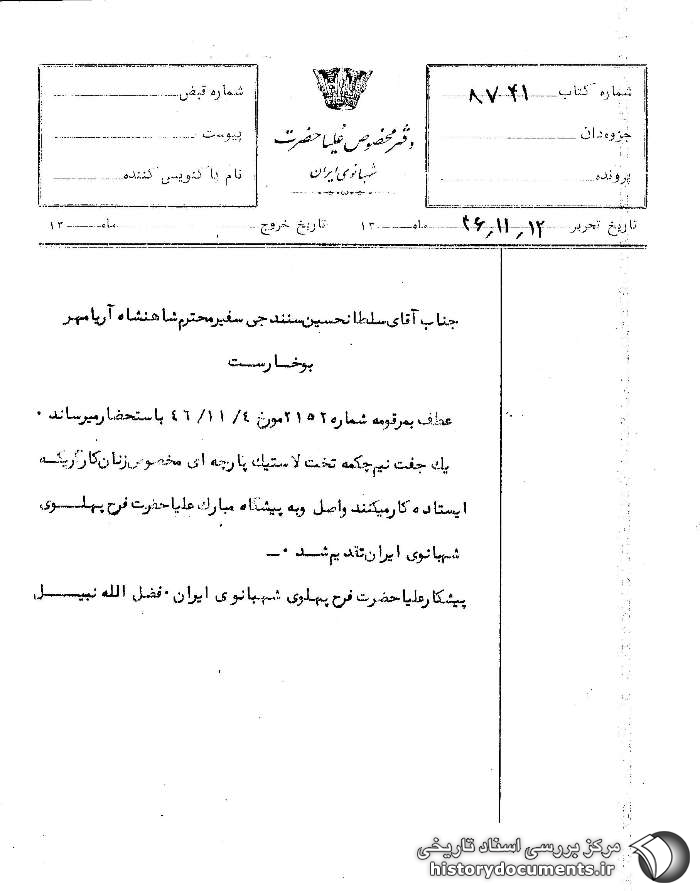 شماره کتاب ۸۷۴۱
جزوه‌دان
پرونده
دفتر مخصوص علیاحضرت
شهبانوی ایران
شماره قبض
پیوست
نام پاکنویس کننده
تاریخ تحریر ۱۲ ر ۱۱ ر ۴۶ ماه ۱۳
تاریخ خروج ماه ۱۳
جناب آقای سلطانحسین سنندجی سفیر محترم شاهنشاه آریامهر
بوخارست
عطف بمرقومه شماره ۲۱۵۲ مورخ ۴/ ۱۱/ ۴۶ باستحضار میرساند ۰
یك جفت نیم چکمه تخت لاستیك پارچه ای مخصوص زنان کارگریکه
ایستاده کار میکنند واصل وبه پیشگاه مبارك علیاحضرت فرح پهلوی
شهبانوی ایران تقدیم شد ۰ـ
پیشکار علیاحضرت فرح پهلوی شهبانوی ایران ۰ فضل الله نبیل
مرکز بررسی اسناد تاریخی
historydocuments.ir